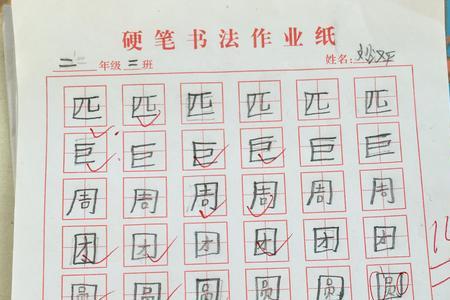 硬笔书法作业纸
二年级二班 姓名:
匹 匹 匹 匹 匹 匹
巨 巨 巨 巨 巨 巨
周 周 周 周 周 周
团 团 团 团 团 团
圆 圆 圆 圆 圆 圆